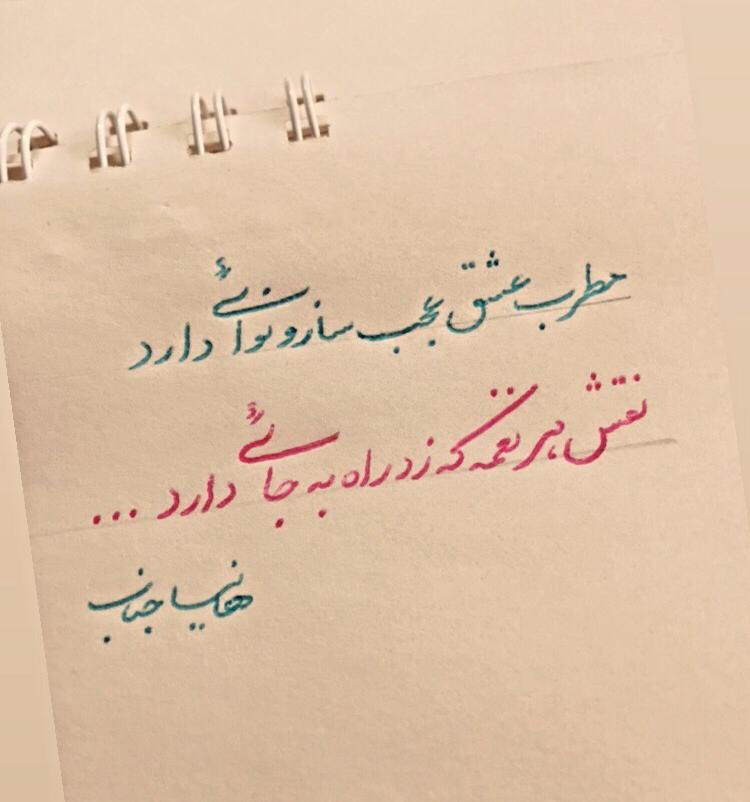 مطرب عشق عجب ساز و نوائی دارد
نقش هر نغمه که زد راه به جائی دارد ...